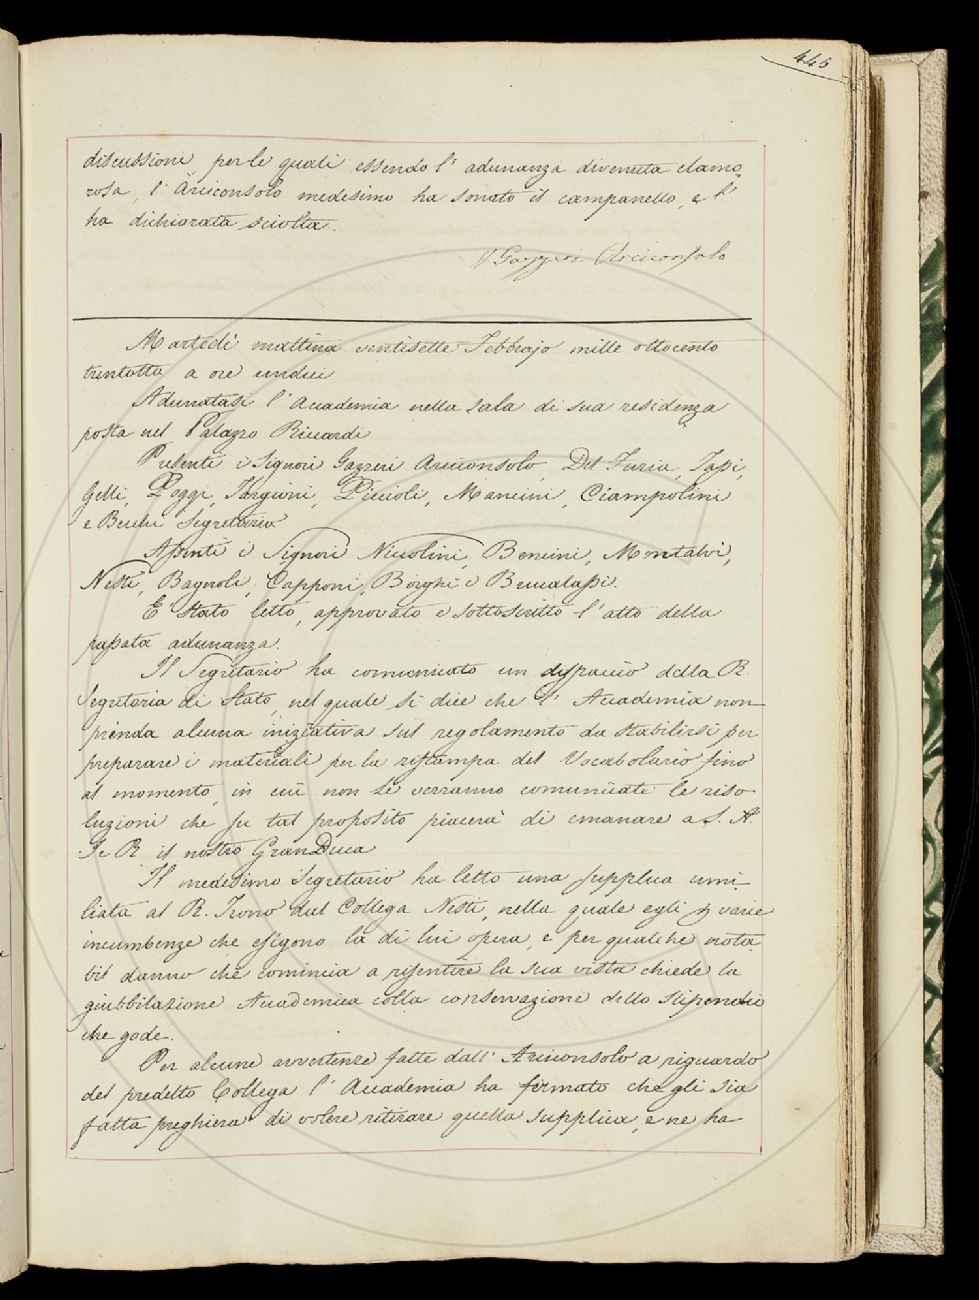 446
discussioni per le quali essendo l' adunanza divenuta clamo
rosa, l' Arciconsolo medesimo ha sonato il campanello, e l'
ha dichiarata sciolta.
Gazzeri Arciconsolo
Martedì mattina ventisette Febbrajo mille ottocento
trentotto a ore undici
Adunatasi l' Accademia nella sala di sua residenza
posta nel Palazzo Riccardi
Presenti i Signori Gazzeri Arciconsolo, Del Furia, Tassi,
Gelli, Poggi, Targioni, Piccioli, Mancini, Ciampolini
e Becchi Segretario
Assenti i Signori Niccolini, Bencini, Montalvi,
Nesti, Bagnoli, Capponi, Borghi e Brucalassi.
È stato letto, approvato e sottoscritto l' atto della
passata adunanza.
Il Segretario ha comunicato un dispaccio della R.
Segreteria di Stato, nel quale si dice che l' Accademia non
prenda alcuna iniziativa sul regolamento da stabilirsi per
preparare i materiali per la ristampa del Vocabolario fino
al momento, in cui non le verranno comunicate le riso
luzioni che su tal proposito piacerà di emanare a S. A.
I. e R. il nostro GranDuca
Il medesimo Segretario ha letto una supplica umi
liata al R. Trono dal Collega Nesti, nella quale egli p varie
incumbenze che esigono la di lui opera, e per qualche nota
bil danno che comincia a risentire la sua vista chiede la
giubbilazione Accademica colla conservazione dello stipendio
che gode.
Per alcune avvertenze fatte dall' Arciconsolo a riguardo
del predetto Collega l' Accademia ha fermato che gli sia
fatta preghiera di volere ritirare quella supplica, e ne ha